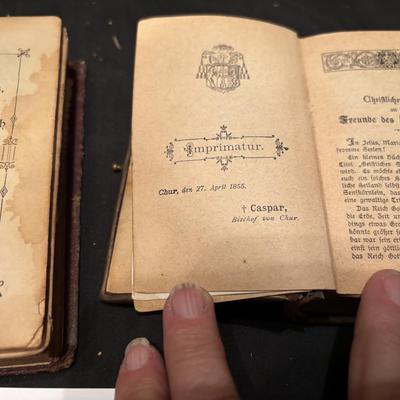 Imprimatur.
Chur, den 27. April 1855.
† Caspar,
Bischof von Chur.
Christliche
an
Freunde des
In Jesus, Mari
fromme Seelen!
Ein kleines Büch
Titel „Geistliches S
wird. Es möchte e
auch ein solches K
liche Heiland selbst
Senfkörnlein, das
eine gewaltige
Das Reich Got
die Erde, Zeit un
dings etwas Gro
könnte größer s
bar war sein er
einst sein göttli
das Reich Got